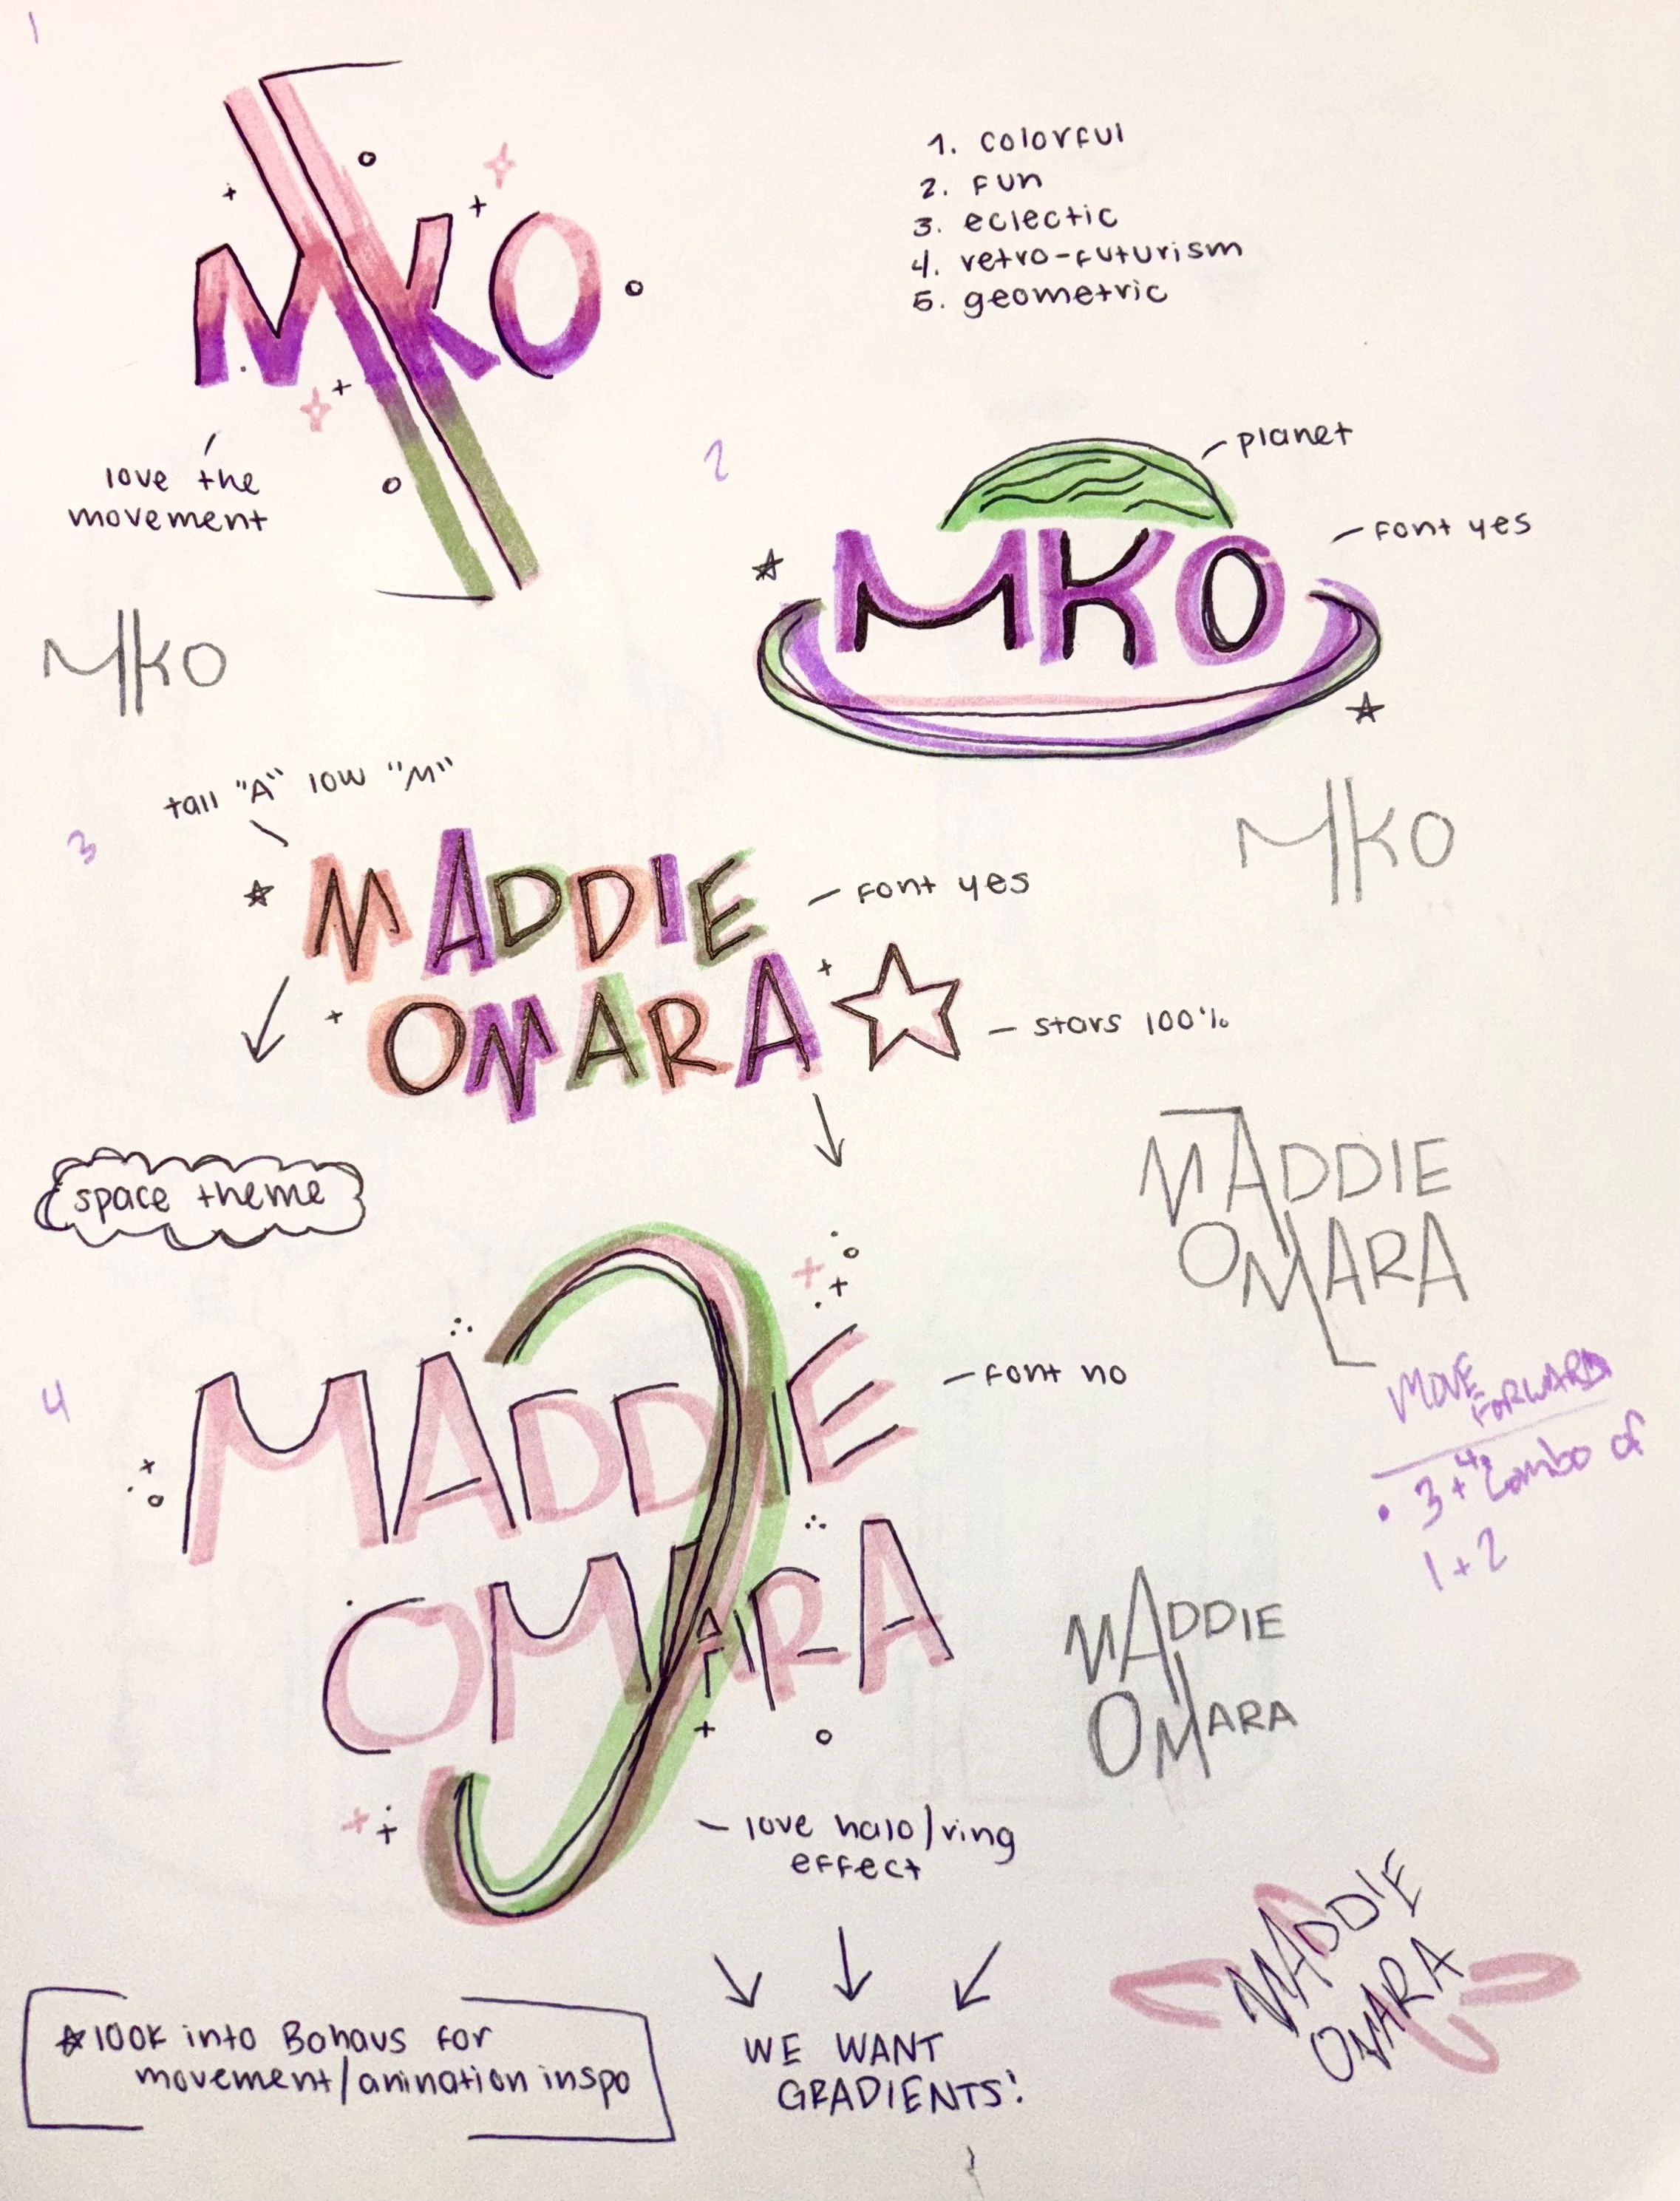 1
MKO
1. colorful
2. fun
3. eclectic
4. retro-futurism
5. geometric
love the
movement
2
planet
font yes
MKO
MKO
tall "A" low "M"
3
MADDIE
OMARA
font yes
stars 100%
MKO
space theme
MADDIE
OMARA
4
MADDIE
OMARA
font no
MOVE
FORWARD
• 3+4, combo of
1+2
MADDIE
OMARA
love halo/ring
effect
MADDIE
OMARA
look into Bohaus for
movement/anination inspo
WE WANT
GRADIENTS!